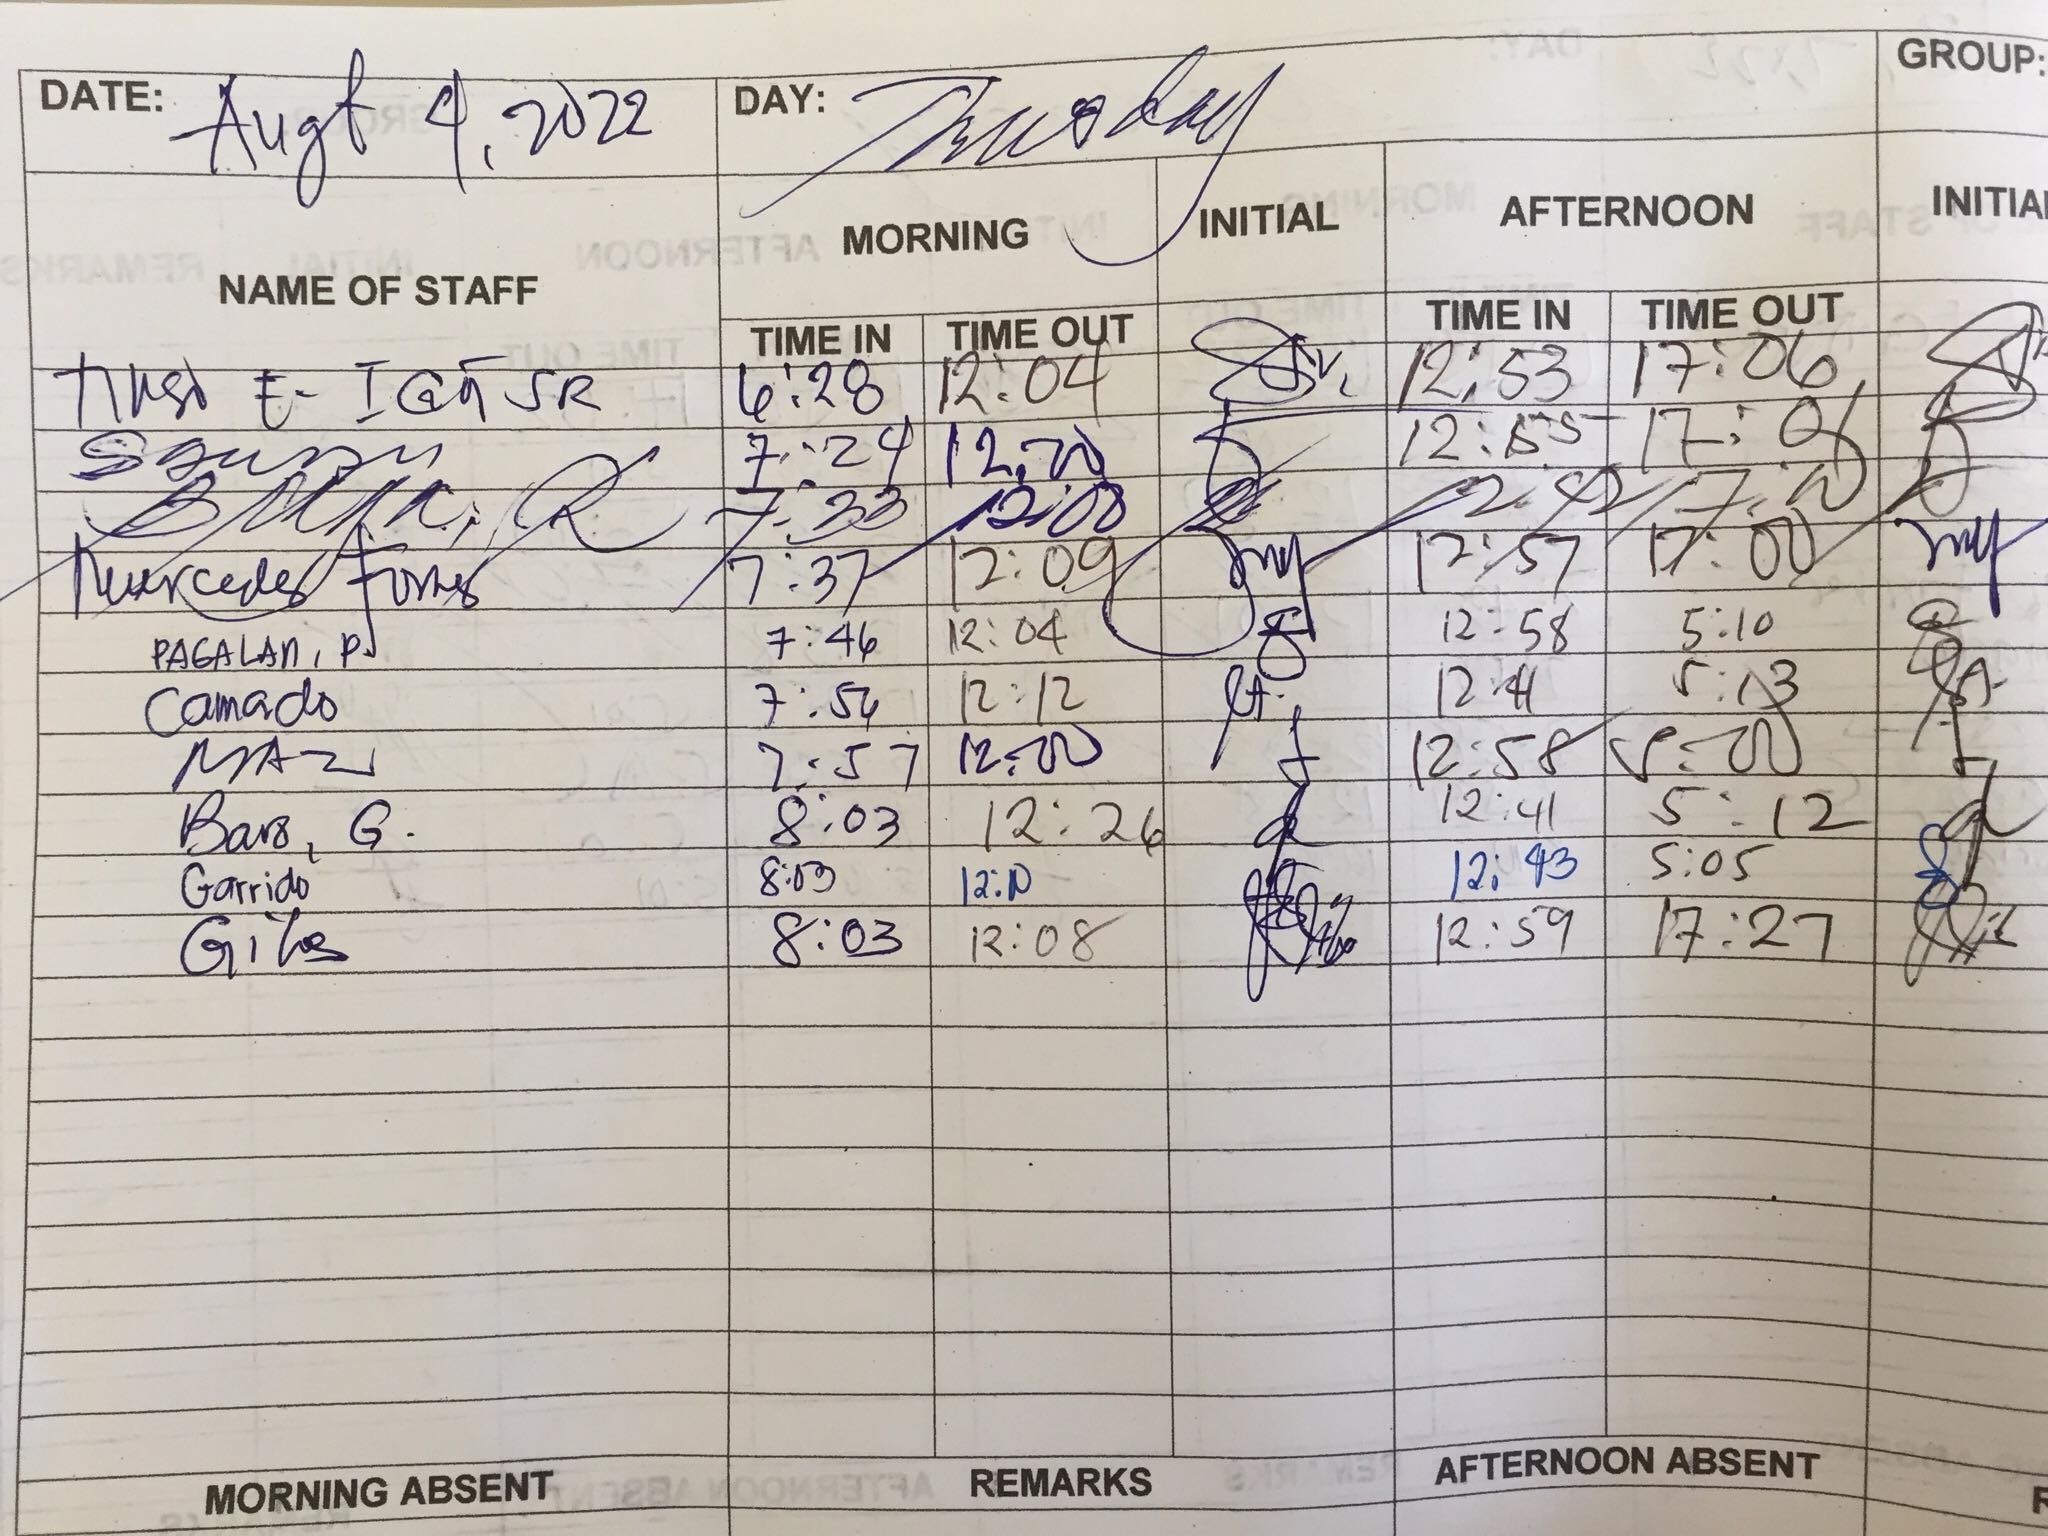 DATE: Augt 4, 2022 DAY: Thursday GROUP:
NAME OF STAFF MORNING INITIAL AFTERNOON INITIA
TIME IN TIME OUT TIME IN TIME OUT
E- IGOT JR 6:28 12:04 12:53 17:06
7:24 12:20 12:55 17:06
R 7:33 12:08 12:42 17:20
Mercedes Torres 7:37 12:09 my 12:57 17:00 my
PAGALAN, P. 7:46 12:04 12:58 5:10
Camado 7:54 12:12 12:41 5:13
7:57 12:00 12:58 5:00
Baro, G. 8:03 12:26 12:41 5:12
Garrido 8:03 12:10 12:43 5:05
8:03 12:08 12:59 17:27
MORNING ABSENT REMARKS AFTERNOON ABSENT R